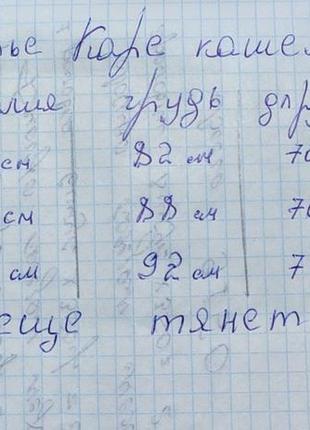 ье Каре кашем
лия грудь дл р
см 82 см 70
см 88 см 70
см 92 см 7
еще тянет